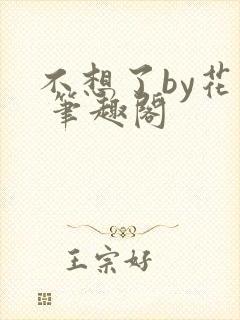 不想了by花
筆趣閣
王宗好